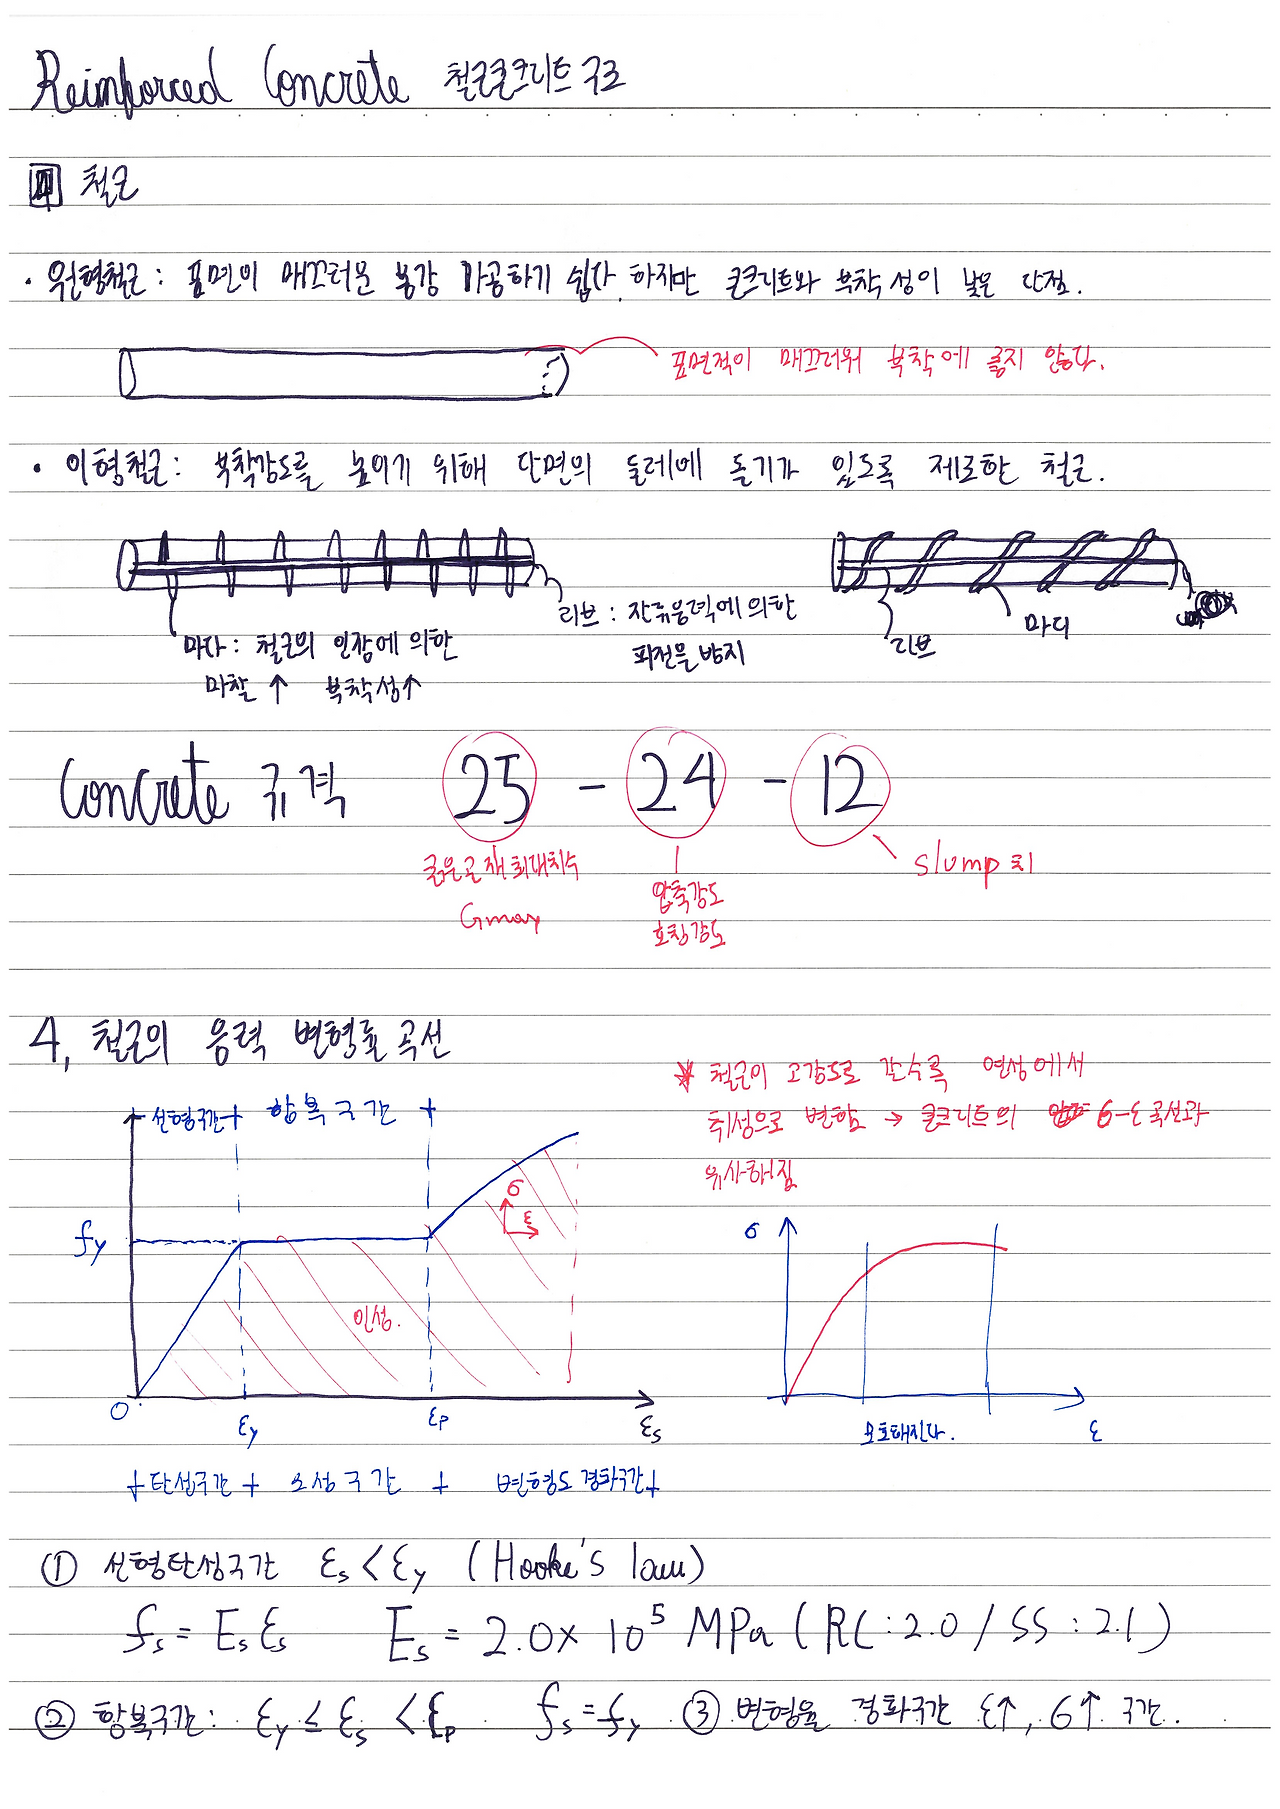 Reinforced Concrete 철근콘크리트 구조
철근
· 원형철근 : 표면이 매끄러운 봉강 가공하기 쉽다. 하지만 콘크리트와 부착성이 낮은 단점.
표면적이 매끄러워 부착에 좋지 않다.
· 이형철근 : 부착강도를 높이기 위해 단면의 둘레에 돌기가 있도록 제조한 철근.
마디 : 철근의 인장에 의한
마찰 ↑ 부착성↑
리브 : 잔류응력에 의한
회전을 방지
리브
마디
Concrete 규격 25 - 24 - 12
굵은골재 최대치수
Gmax
압축강도
호칭강도
slump 치
4. 철근의 응력 변형률 곡선
* 철근이 고강도로 갈수록 연성에서
취성으로 변함 → 콘크리트의 σ-ε곡선과
유사해짐
선형구간 항복구간
fy
σ
ε
인성.
0
εy
εp
εs
탄성구간 소성구간 변형도 경화구간
σ
모호해진다.
ε
① 선형탄성구간 εs < εy (Hooke's law)
fs = Es εs Es = 2.0 × 10⁵ MPa (RC : 2.0 / SS : 2.1)
② 항복구간 : εy ≤ εs < εp fs = fy ③ 변형율 경화구간 ε↑, σ↑ 구간.